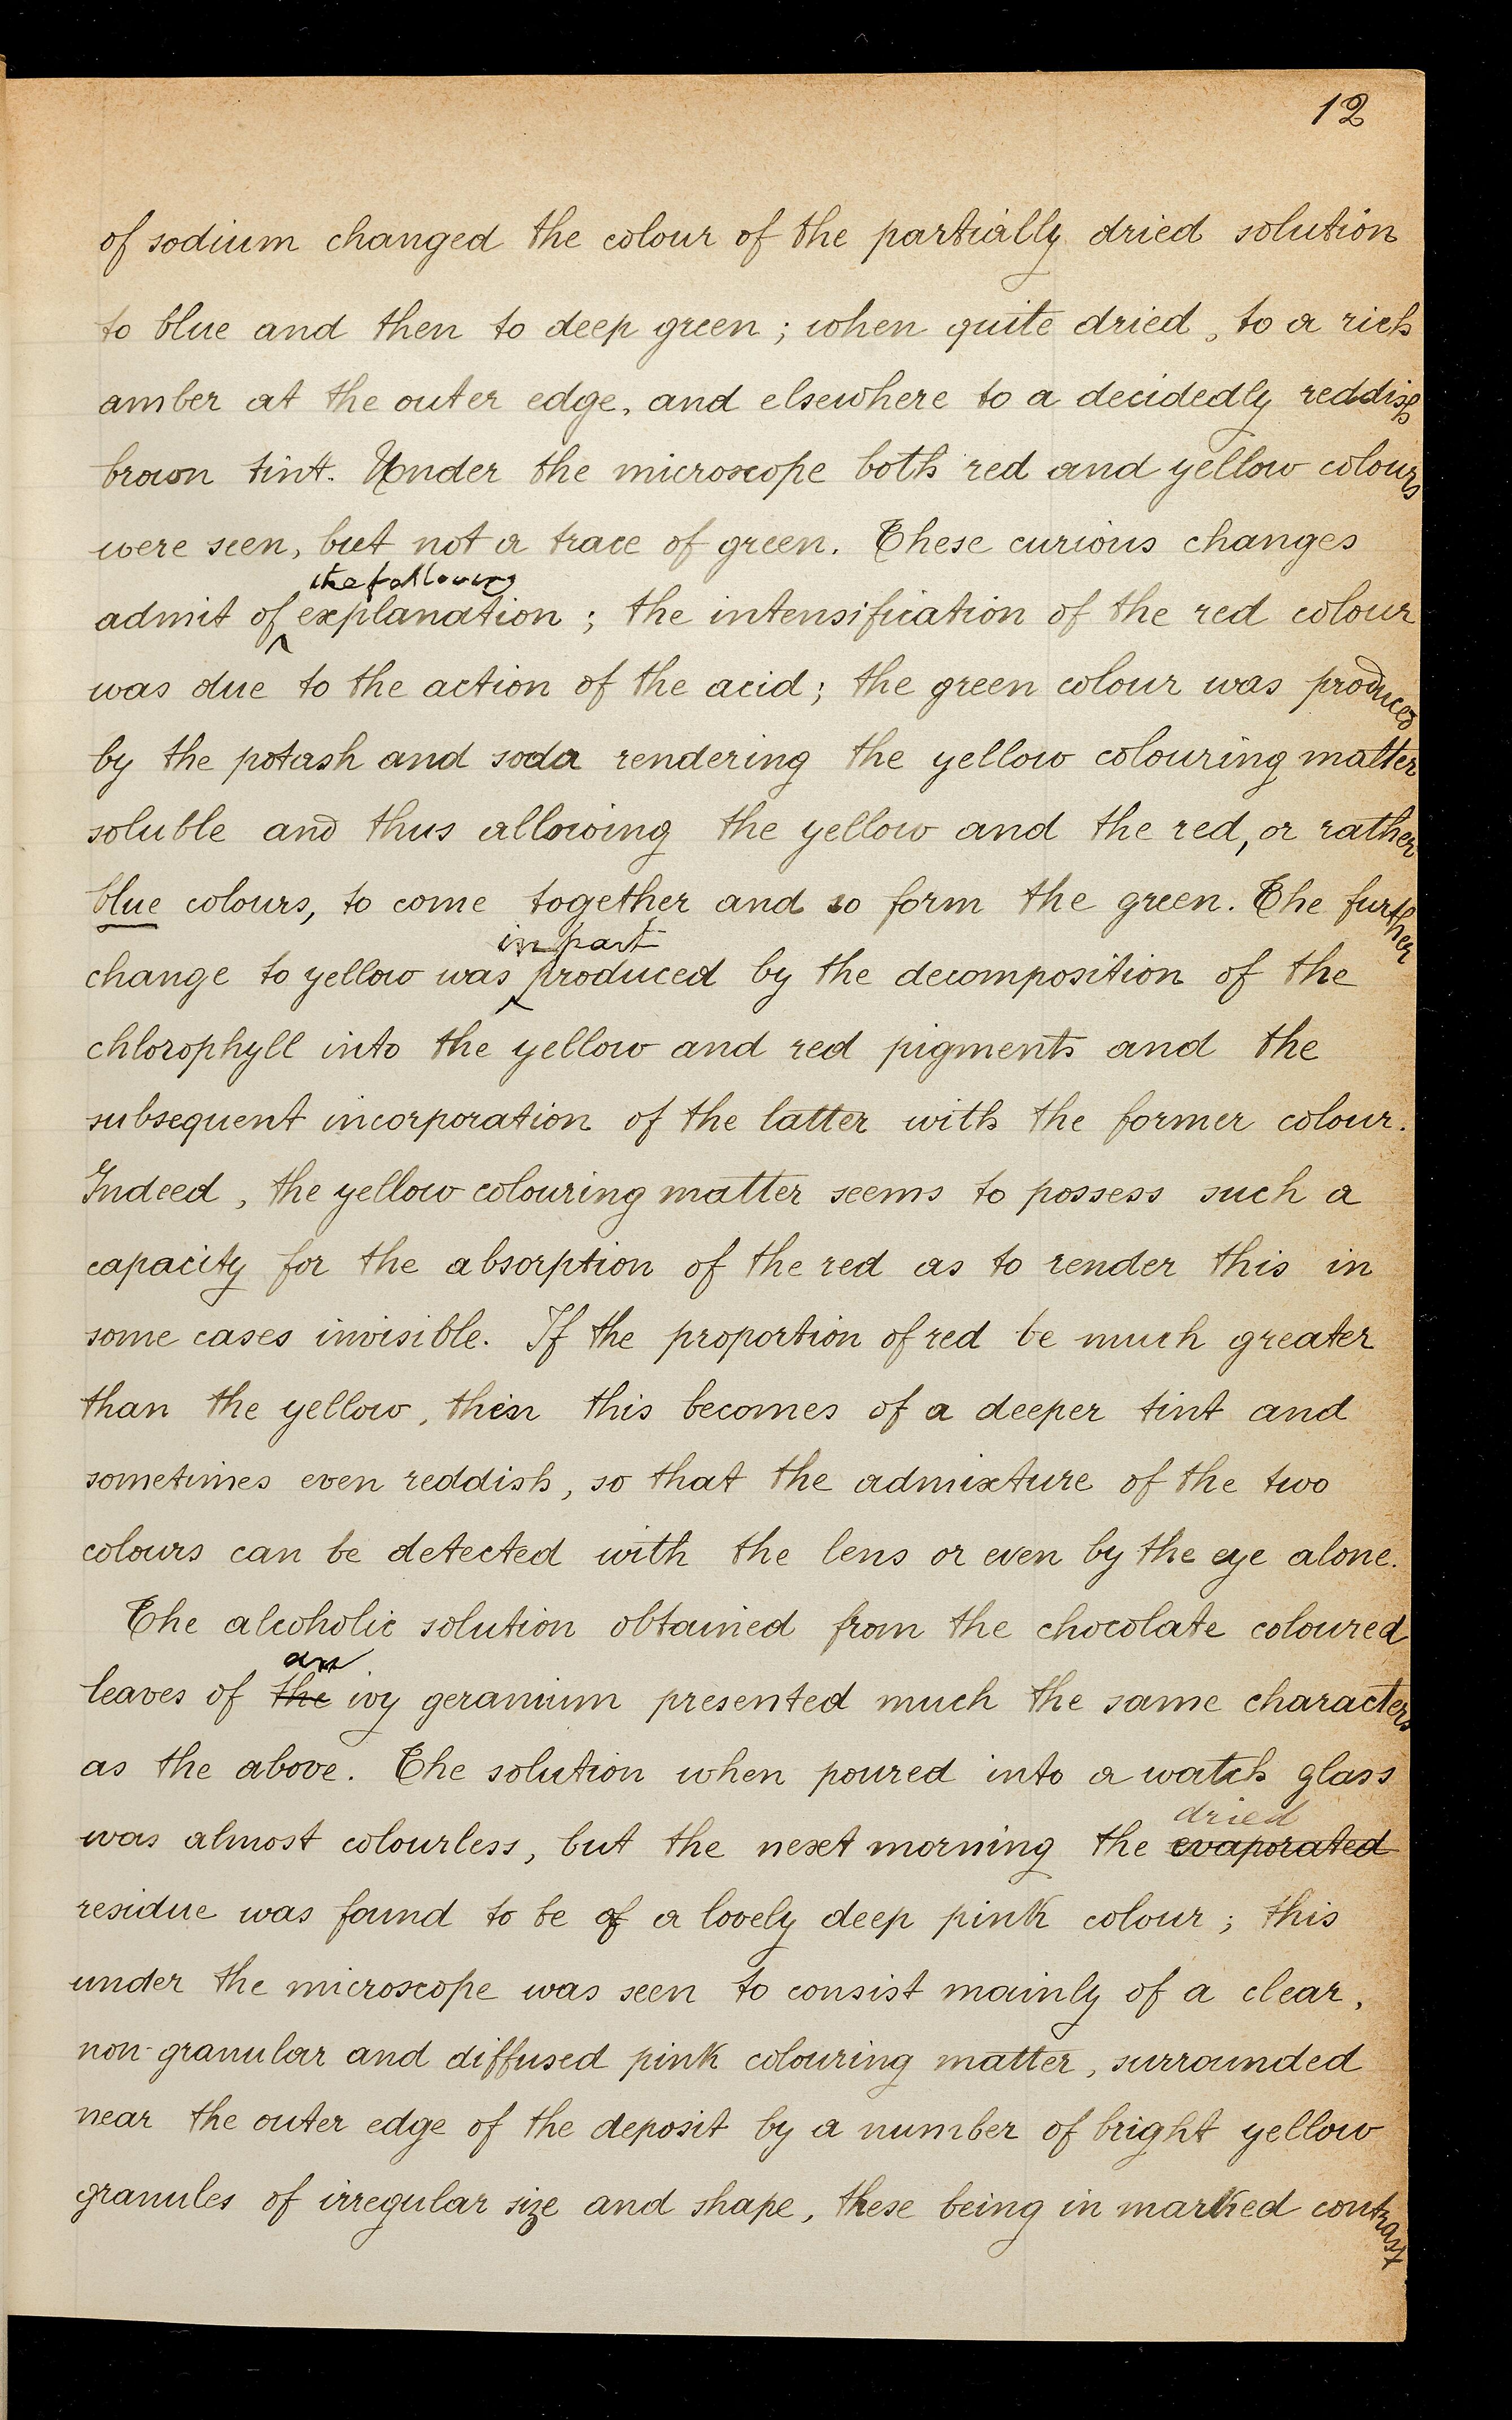 12
of sodium changed the colour of the partially dried solution
to blue and then to deep green; when quite dried, to a rich
amber at the outer edge, and elsewhere to a decidedly reddish
brown tint. Under the microscope both red and yellow colours
were seen, but not a trace of green. These curious changes
the following
admit of explanation; the intensification of the red colour
was due to the action of the acid; the green colour was produced
by the potash and soda rendering the yellow colouring matter
soluble and thus allowing the yellow and the red, or rather
blue colours, to come together and so form the green. The further
in part
change to yellow was produced by the decomposition of the
chlorophyll into the yellow and red pigments and the
subsequent incorporation of the latter with the former colour.
Indeed, the yellow colouring matter seems to possess such a
capacity for the absorption of the red as to render this in
some cases invisible. If the proportion of red be much greater
than the yellow, then this becomes of a deeper tint and
sometimes even reddish, so that the admixture of the two
colours can be detected with the lens or even by the eye alone.
The alcoholic solution obtained from the chocolate coloured
an
leaves of the ivy geranium presented much the same characters
as the above. The solution when poured into a watch glass
dried
was almost colourless, but the next morning the evaporated
residue was found to be of a lovely deep pink colour; this
under the microscope was seen to consist mainly of a clear,
non-granular and diffused pink colouring matter, surrounded
near the outer edge of the deposit by a number of bright yellow
granules of irregular size and shape, these being in marked contrast